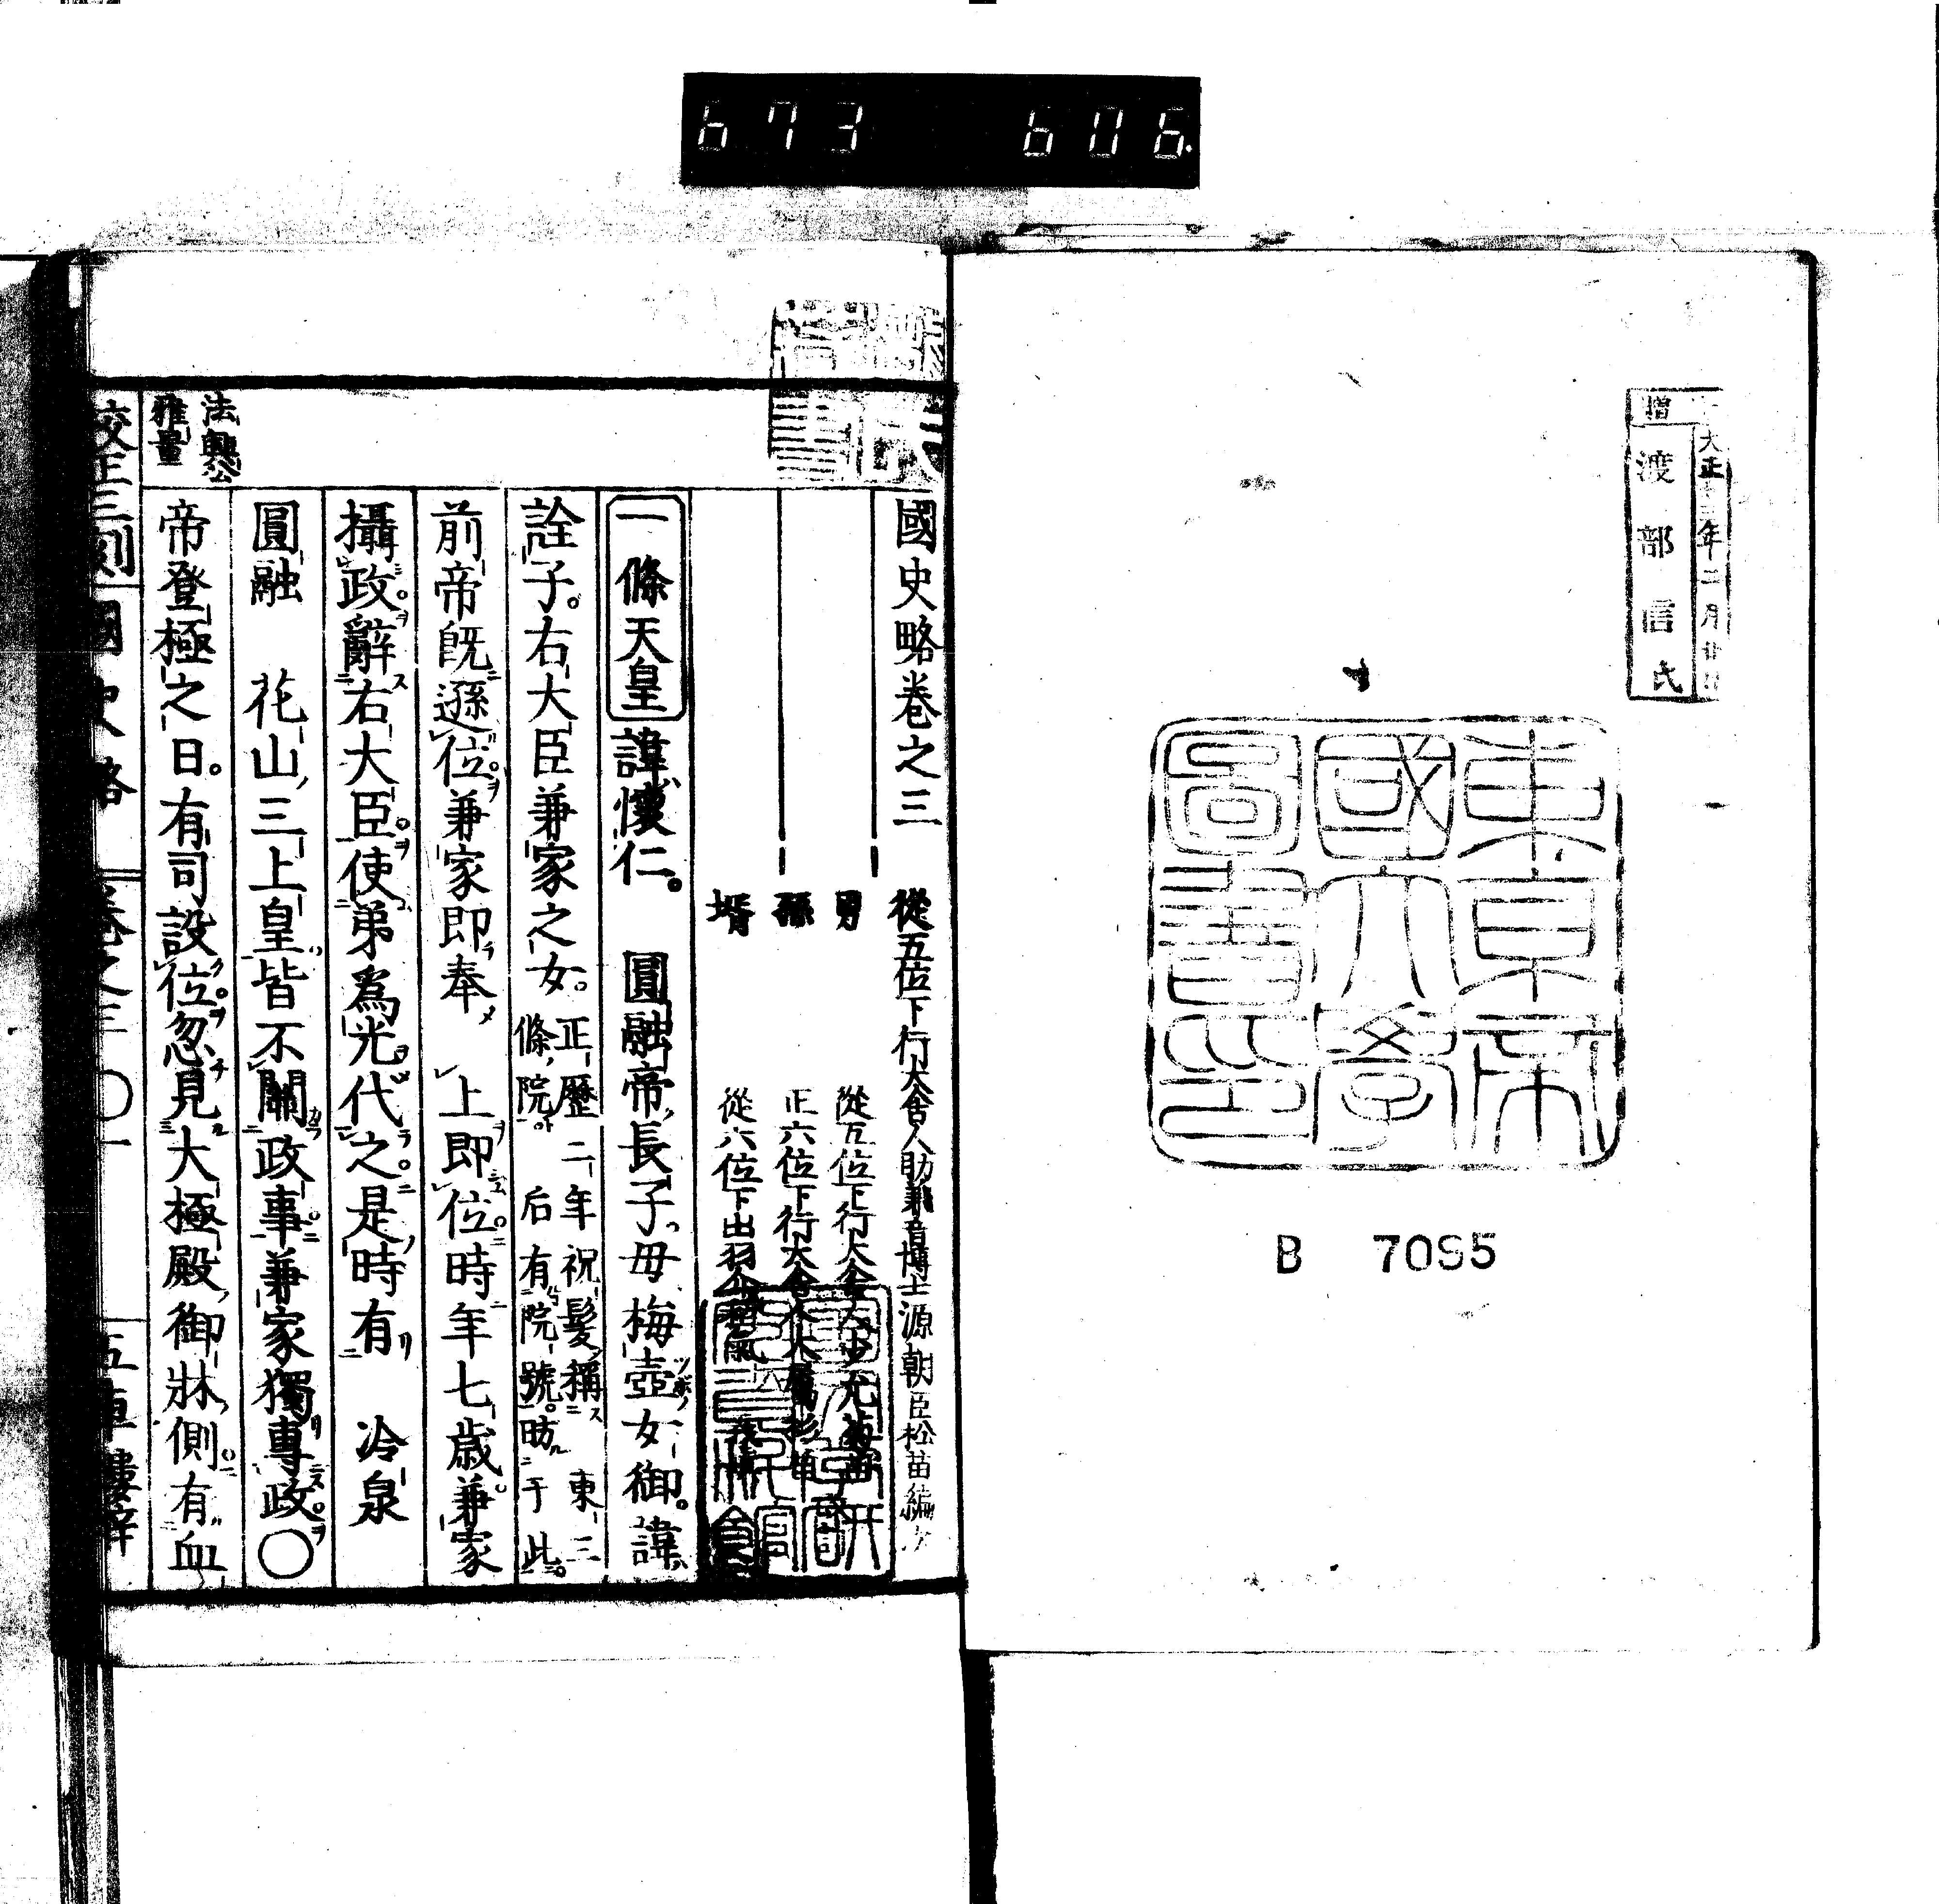 673 606
大正十三年二月廿
贈 渡部信氏
東京帝
國大學
圖書印
B 7095
國史略卷之三 從五位下行大舍人助兼音博士源朝臣松苗編次
男 從五位下行大舍人少允
孫 正六位下行大舍人大屬
壻 從六位下出羽介
一條天皇 諱懷仁。 圓融帝長子。母梅壺女御。諱
詮子。右大臣兼家之女。正曆二年祝髮稱東三條院。后有院號昉于此。
前帝既遜位。兼家即奉 上即位。時年七歲。兼家
攝政。辭右大臣。使弟爲光代之。是時有 冷泉
圓融 花山三上皇。皆不關政事。兼家獨專政。〇
法興公雅量
帝登極之日。有司設位。忽見大極殿御牀側有血
校正三刻 國史略 卷之三 〇一 五車樓梓